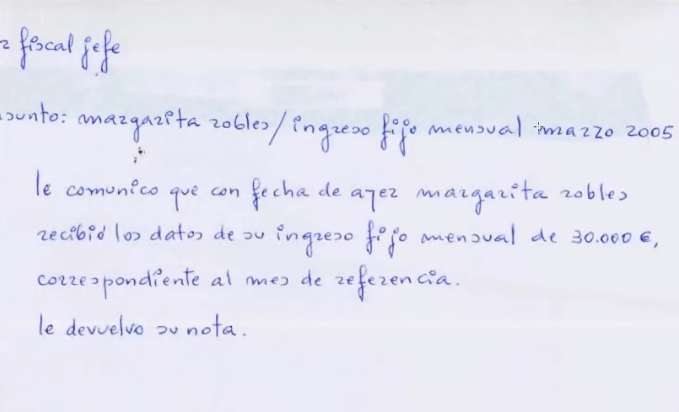 fiscal jefe
asunto: margarita robles/ingreso fijo mensual marzo 2005
le comunico que con fecha de ayer margarita robles
recibió los datos de su ingreso fijo mensual de 30.000 €,
correspondiente al mes de referencia.
le devuelvo su nota.